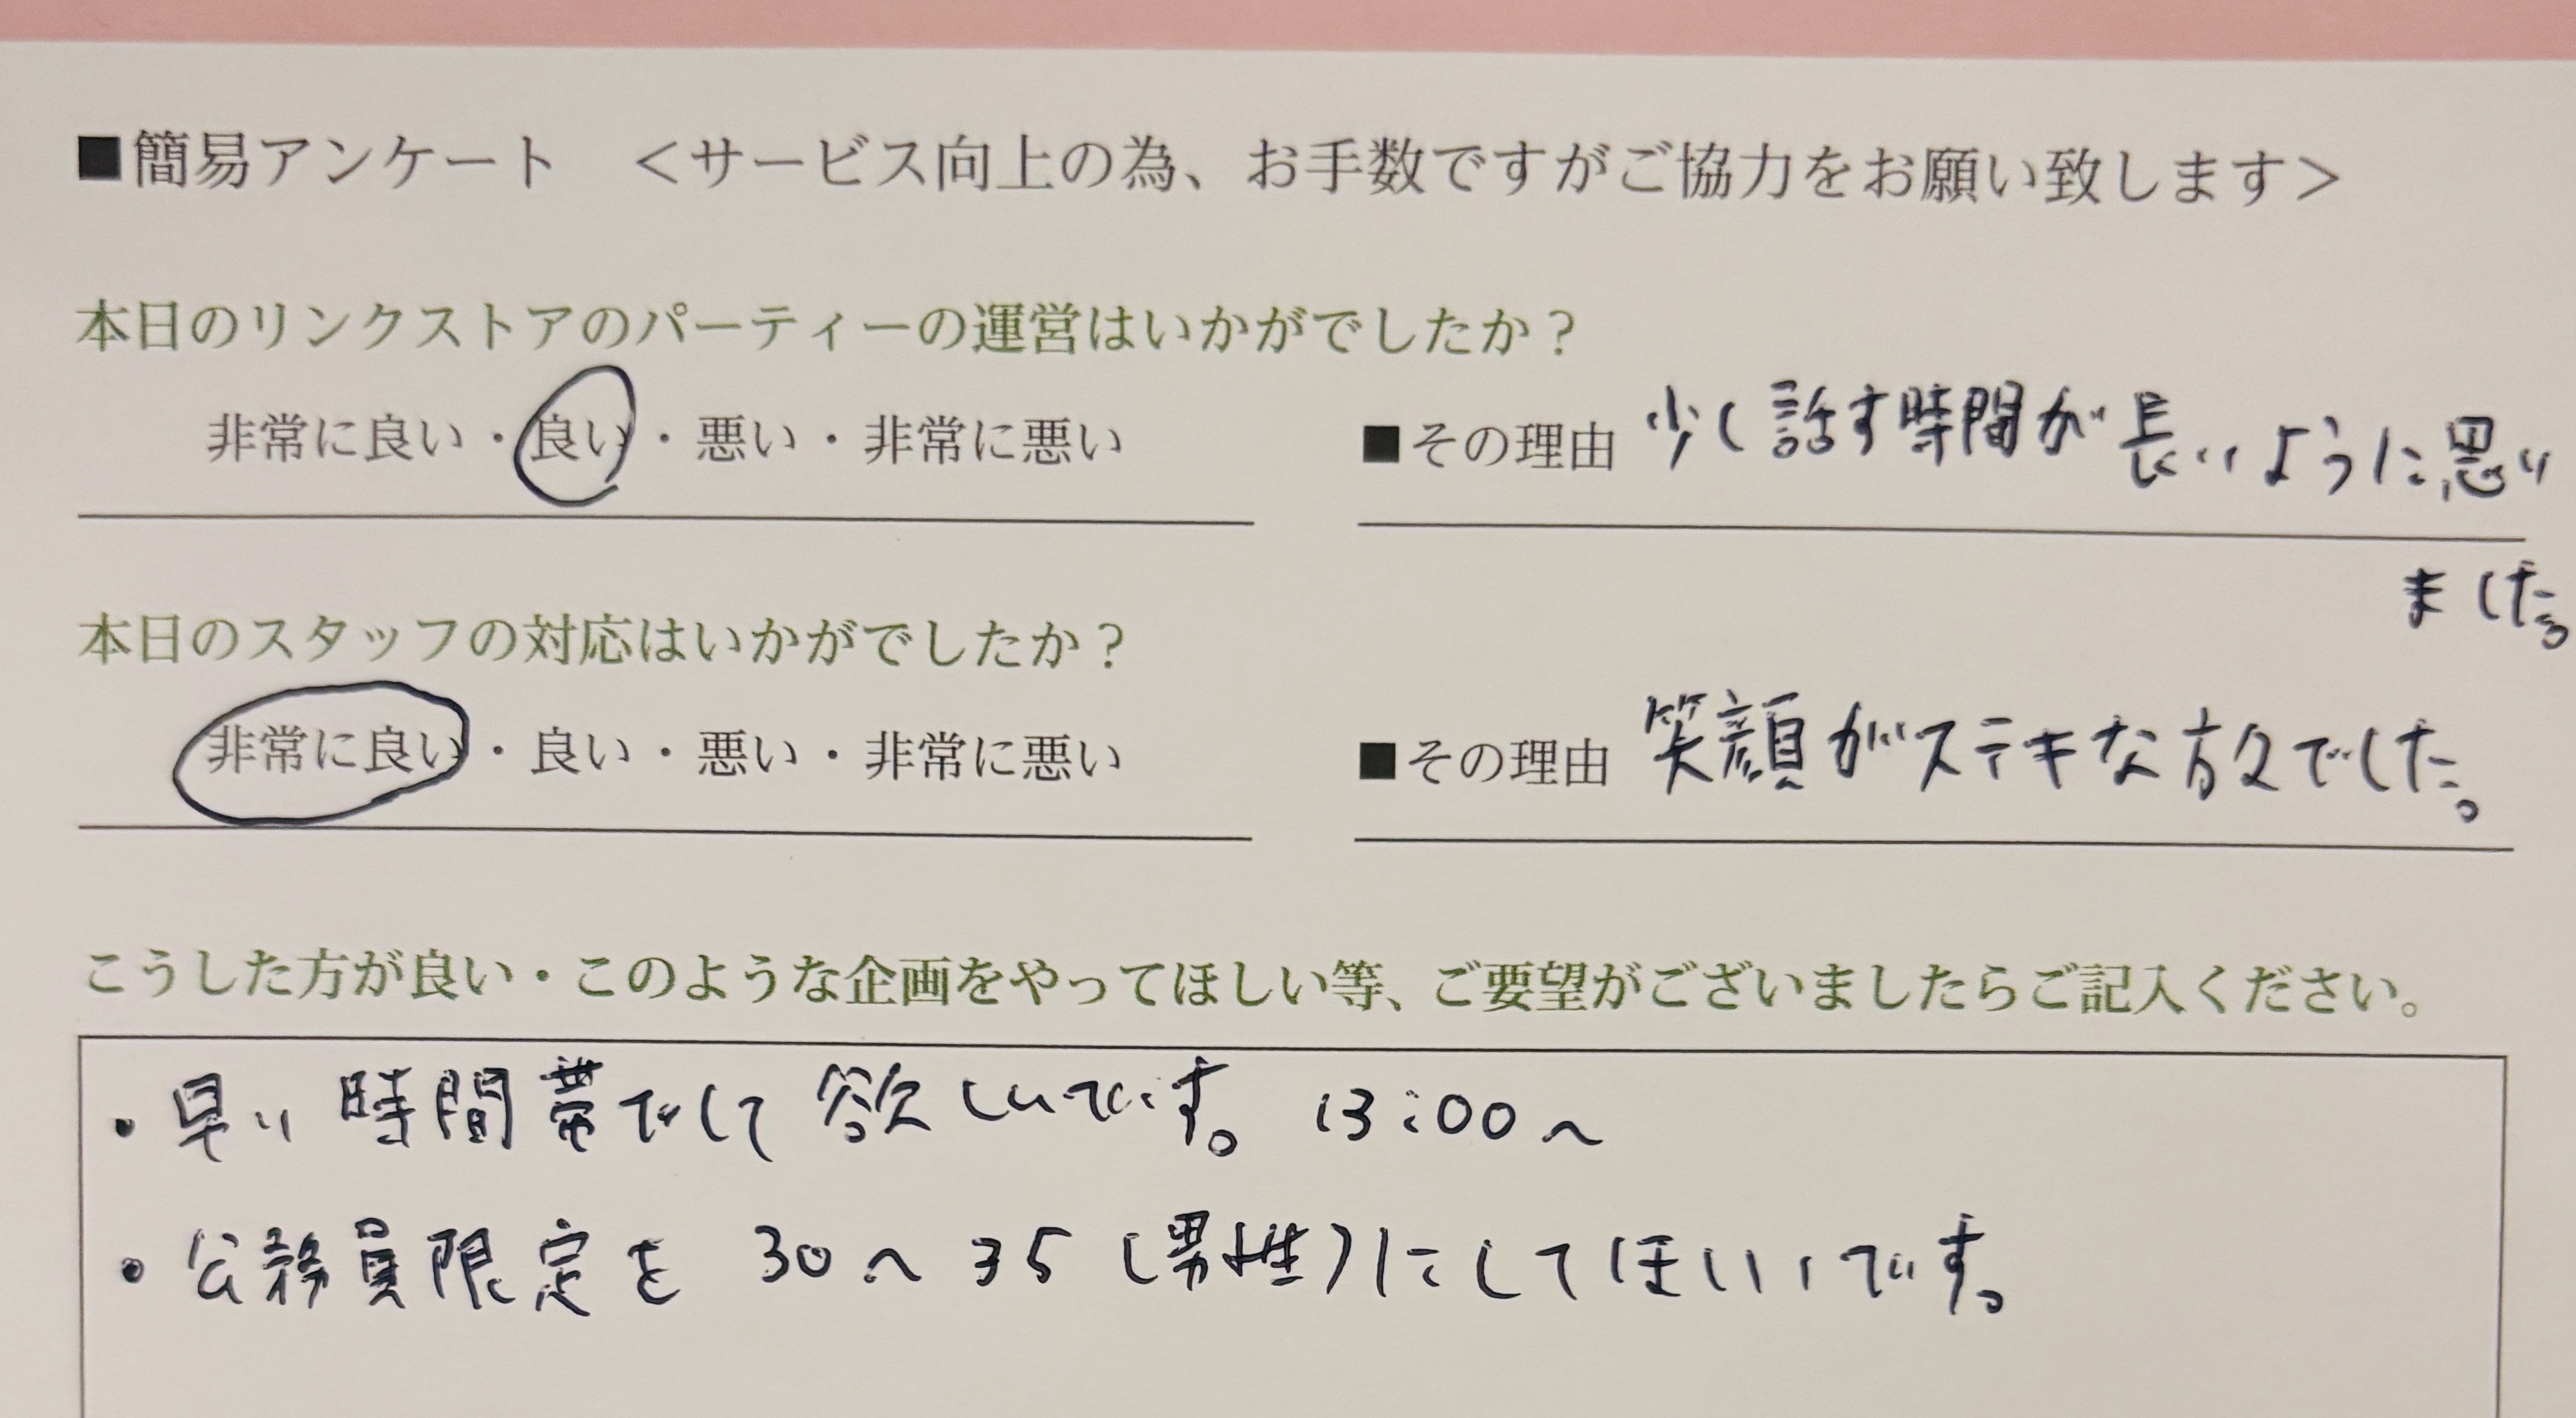 ■簡易アンケート　＜サービス向上の為、お手数ですがご協力をお願い致します＞
本日のリンクストアのパーティーの運営はいかがでしたか？
非常に良い・良い・悪い・非常に悪い
■その理由 少し話す時間が長いように思い
ました。
本日のスタッフの対応はいかがでしたか？
非常に良い・良い・悪い・非常に悪い
■その理由 笑顔がステキな方々でした。
こうした方が良い・このような企画をやってほしい等、ご要望がございましたらご記入ください。
・早い時間帯でして欲しいです。13:00〜
・公務員限定を 30〜35（男性）にしてほしいです。